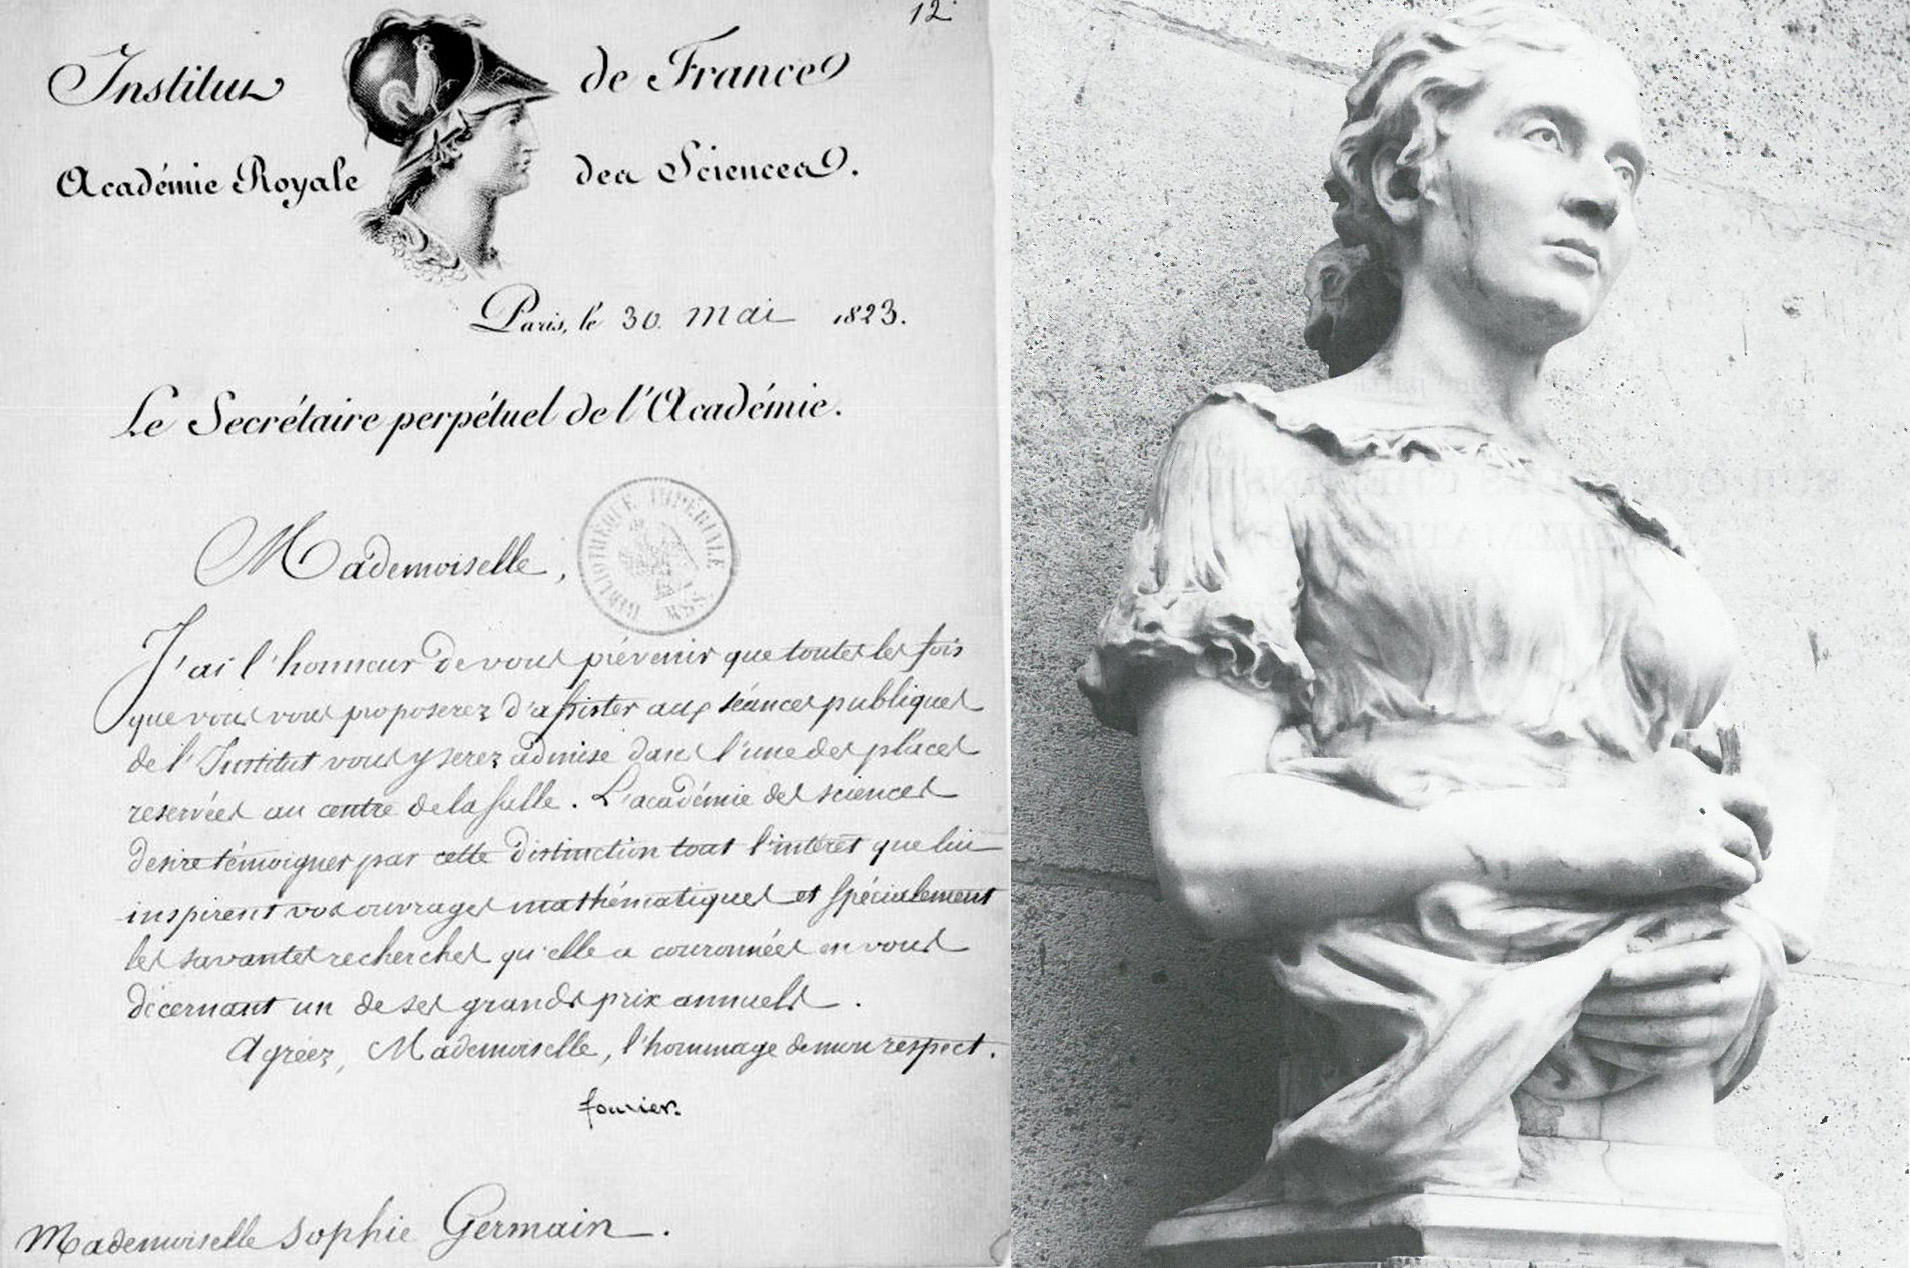 12
Institut de France
Académie Royale des Sciences.
Paris, le 30 mai 1823.
Le Secrétaire perpétuel de l'Académie.
BIBLIOTHEQUE IMPÉRIALE
MSS.
Mademoiselle,
J'ai l'honneur de vous prévenir que toutes les fois
que vous vous proposerez d'assister aux séances publiques
de l'Institut vous y serez admise dans l'une des places
reservées au centre de la salle. L'académie des sciences
desire témoigner par cette distinction tout l'intéret que lui
inspirent vos ouvrages mathématiques et spécialement
les savantes recherches qu'elle a couronnées en vous
décernant un de ses grands prix annuels.
Agréez, Mademoiselle, l'hommage de mon respect.
fourier.
Mademoiselle Sophie Germain.